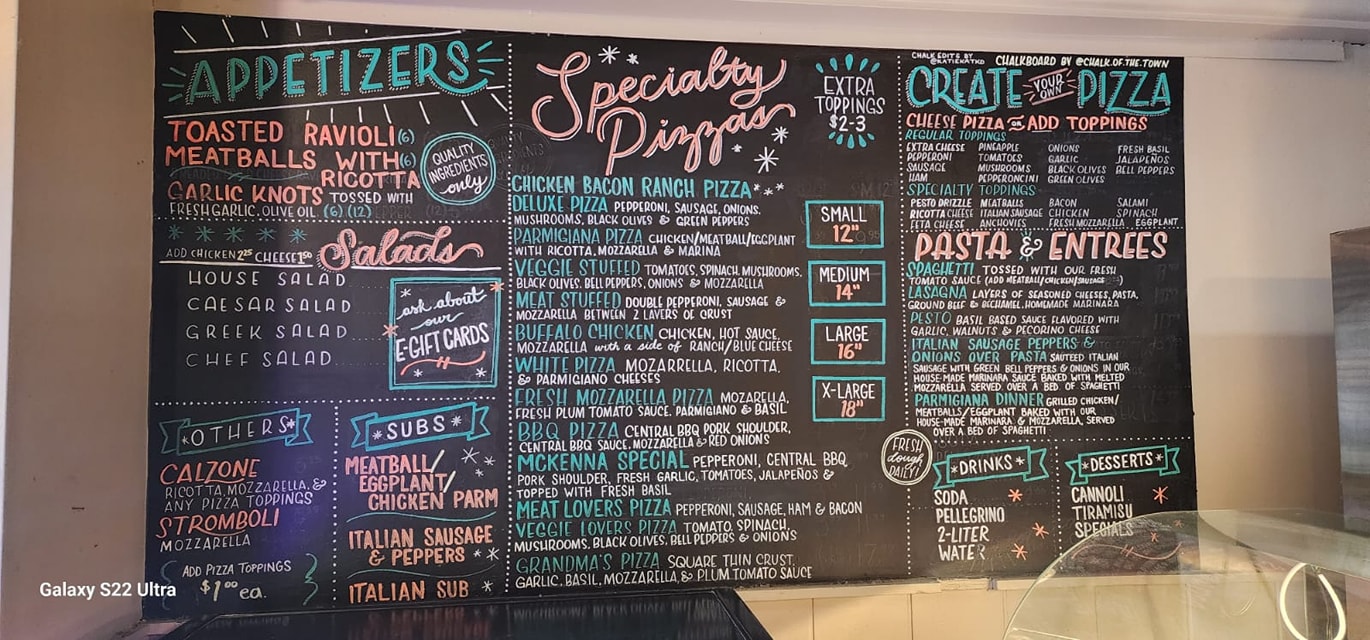 APPETIZERS
TOASTED RAVIOLI (6)
MEATBALLS WITH (6)
RICOTTA
GARLIC KNOTS TOSSED WITH
FRESH GARLIC, OLIVE OIL (6) (12)
QUALITY
INGREDIENTS
only
ADD CHICKEN 2.25 CHEESE 1.50
Salads
HOUSE SALAD
CAESAR SALAD
GREEK SALAD
CHEF SALAD
ask about
our
E-GIFT CARDS
OTHERS
CALZONE
RICOTTA, MOZZARELLA, &
ANY PIZZA TOPPINGS
STROMBOLI
MOZZARELLA
ADD PIZZA TOPPINGS
$1.00 ea.
SUBS
MEATBALL/
EGGPLANT/
CHICKEN PARM
ITALIAN SAUSAGE
& PEPPERS
ITALIAN SUB
Specialty
Pizzas
EXTRA
TOPPINGS
$2-3
CHICKEN BACON RANCH PIZZA
DELUXE PIZZA PEPPERONI, SAUSAGE, ONIONS,
MUSHROOMS, BLACK OLIVES & GREEN PEPPERS
PARMIGIANA PIZZA CHICKEN/MEATBALL/EGGPLANT
WITH RICOTTA, MOZZARELLA & MARINA
VEGGIE STUFFED TOMATOES, SPINACH, MUSHROOMS,
BLACK OLIVES, BELL PEPPERS, ONIONS & MOZZARELLA
MEAT STUFFED DOUBLE PEPPERONI, SAUSAGE &
MOZZARELLA BETWEEN 2 LAYERS OF CRUST
BUFFALO CHICKEN CHICKEN, HOT SAUCE,
MOZZARELLA with a side of RANCH/BLUE CHEESE
WHITE PIZZA MOZARRELLA, RICOTTA,
& PARMIGIANO CHEESES
FRESH MOZZARELLA PIZZA MOZARELLA,
FRESH PLUM TOMATO SAUCE, PARMIGIANO & BASIL
BBQ PIZZA CENTRAL BBQ PORK SHOULDER,
CENTRAL BBQ SAUCE, MOZZARELLA & RED ONIONS
MCKENNA SPECIAL PEPPERONI, CENTRAL BBQ
PORK SHOULDER, FRESH GARLIC, TOMATOES, JALAPEÑOS &
TOPPED WITH FRESH BASIL
MEAT LOVERS PIZZA PEPPERONI, SAUSAGE, HAM & BACON
VEGGIE LOVERS PIZZA TOMATO, SPINACH,
MUSHROOMS, BLACK OLIVES, BELL PEPPERS & ONIONS
GRANDMA'S PIZZA SQUARE THIN CRUST,
GARLIC, BASIL, MOZZARELLA, & PLUM TOMATO SAUCE
SMALL
12"
MEDIUM
14"
LARGE
16"
X-LARGE
18"
CHALK EDITS BY
@KATIEKATKD
CHALKBOARD BY @CHALK.OF.THE.TOWN
CREATE YOUR OWN PIZZA
CHEESE PIZZA OR ADD TOPPINGS
REGULAR TOPPINGS
EXTRA CHEESE PINEAPPLE ONIONS FRESH BASIL
PEPPERONI TOMATOES GARLIC JALAPEÑOS
SAUSAGE MUSHROOMS BLACK OLIVES BELL PEPPERS
HAM PEPPERONCINI GREEN OLIVES
SPECIALTY TOPPINGS
PESTO DRIZZLE MEATBALLS BACON SALAMI
RICOTTA CHEESE ITALIAN SAUSAGE CHICKEN SPINACH
FETA CHEESE ANCHOVIES FRESH MOZZARELLA EGGPLANT
PASTA & ENTREES
SPAGHETTI TOSSED WITH OUR FRESH
TOMATO SAUCE (ADD MEATBALL/CHICKEN/SAUSAGE)
LASAGNA LAYERS OF SEASONED CHEESES, PASTA,
GROUND BEEF & BECHAMEL, HOMEMADE MARINARA
PESTO BASIL BASED SAUCE FLAVORED WITH
GARLIC, WALNUTS & PECORINO CHEESE
ITALIAN SAUSAGE PEPPERS &
ONIONS OVER PASTA SAUTEED ITALIAN
SAUSAGE WITH GREEN BELL PEPPERS & ONIONS IN OUR
HOUSE-MADE MARINARA SAUCE BAKED WITH MELTED
MOZZARELLA SERVED OVER A BED OF SPAGHETTI
PARMIGIANA DINNER GRILLED CHICKEN/
MEATBALLS/EGGPLANT BAKED WITH OUR
HOUSE-MADE MARINARA & MOZZARELLA, SERVED
OVER A BED OF SPAGHETTI
FRESH
dough
DAILY!
DRINKS
SODA
PELLEGRINO
2-LITER
WATER
DESSERTS
CANNOLI
TIRAMISU
SPECIALS
Galaxy S22 Ultra